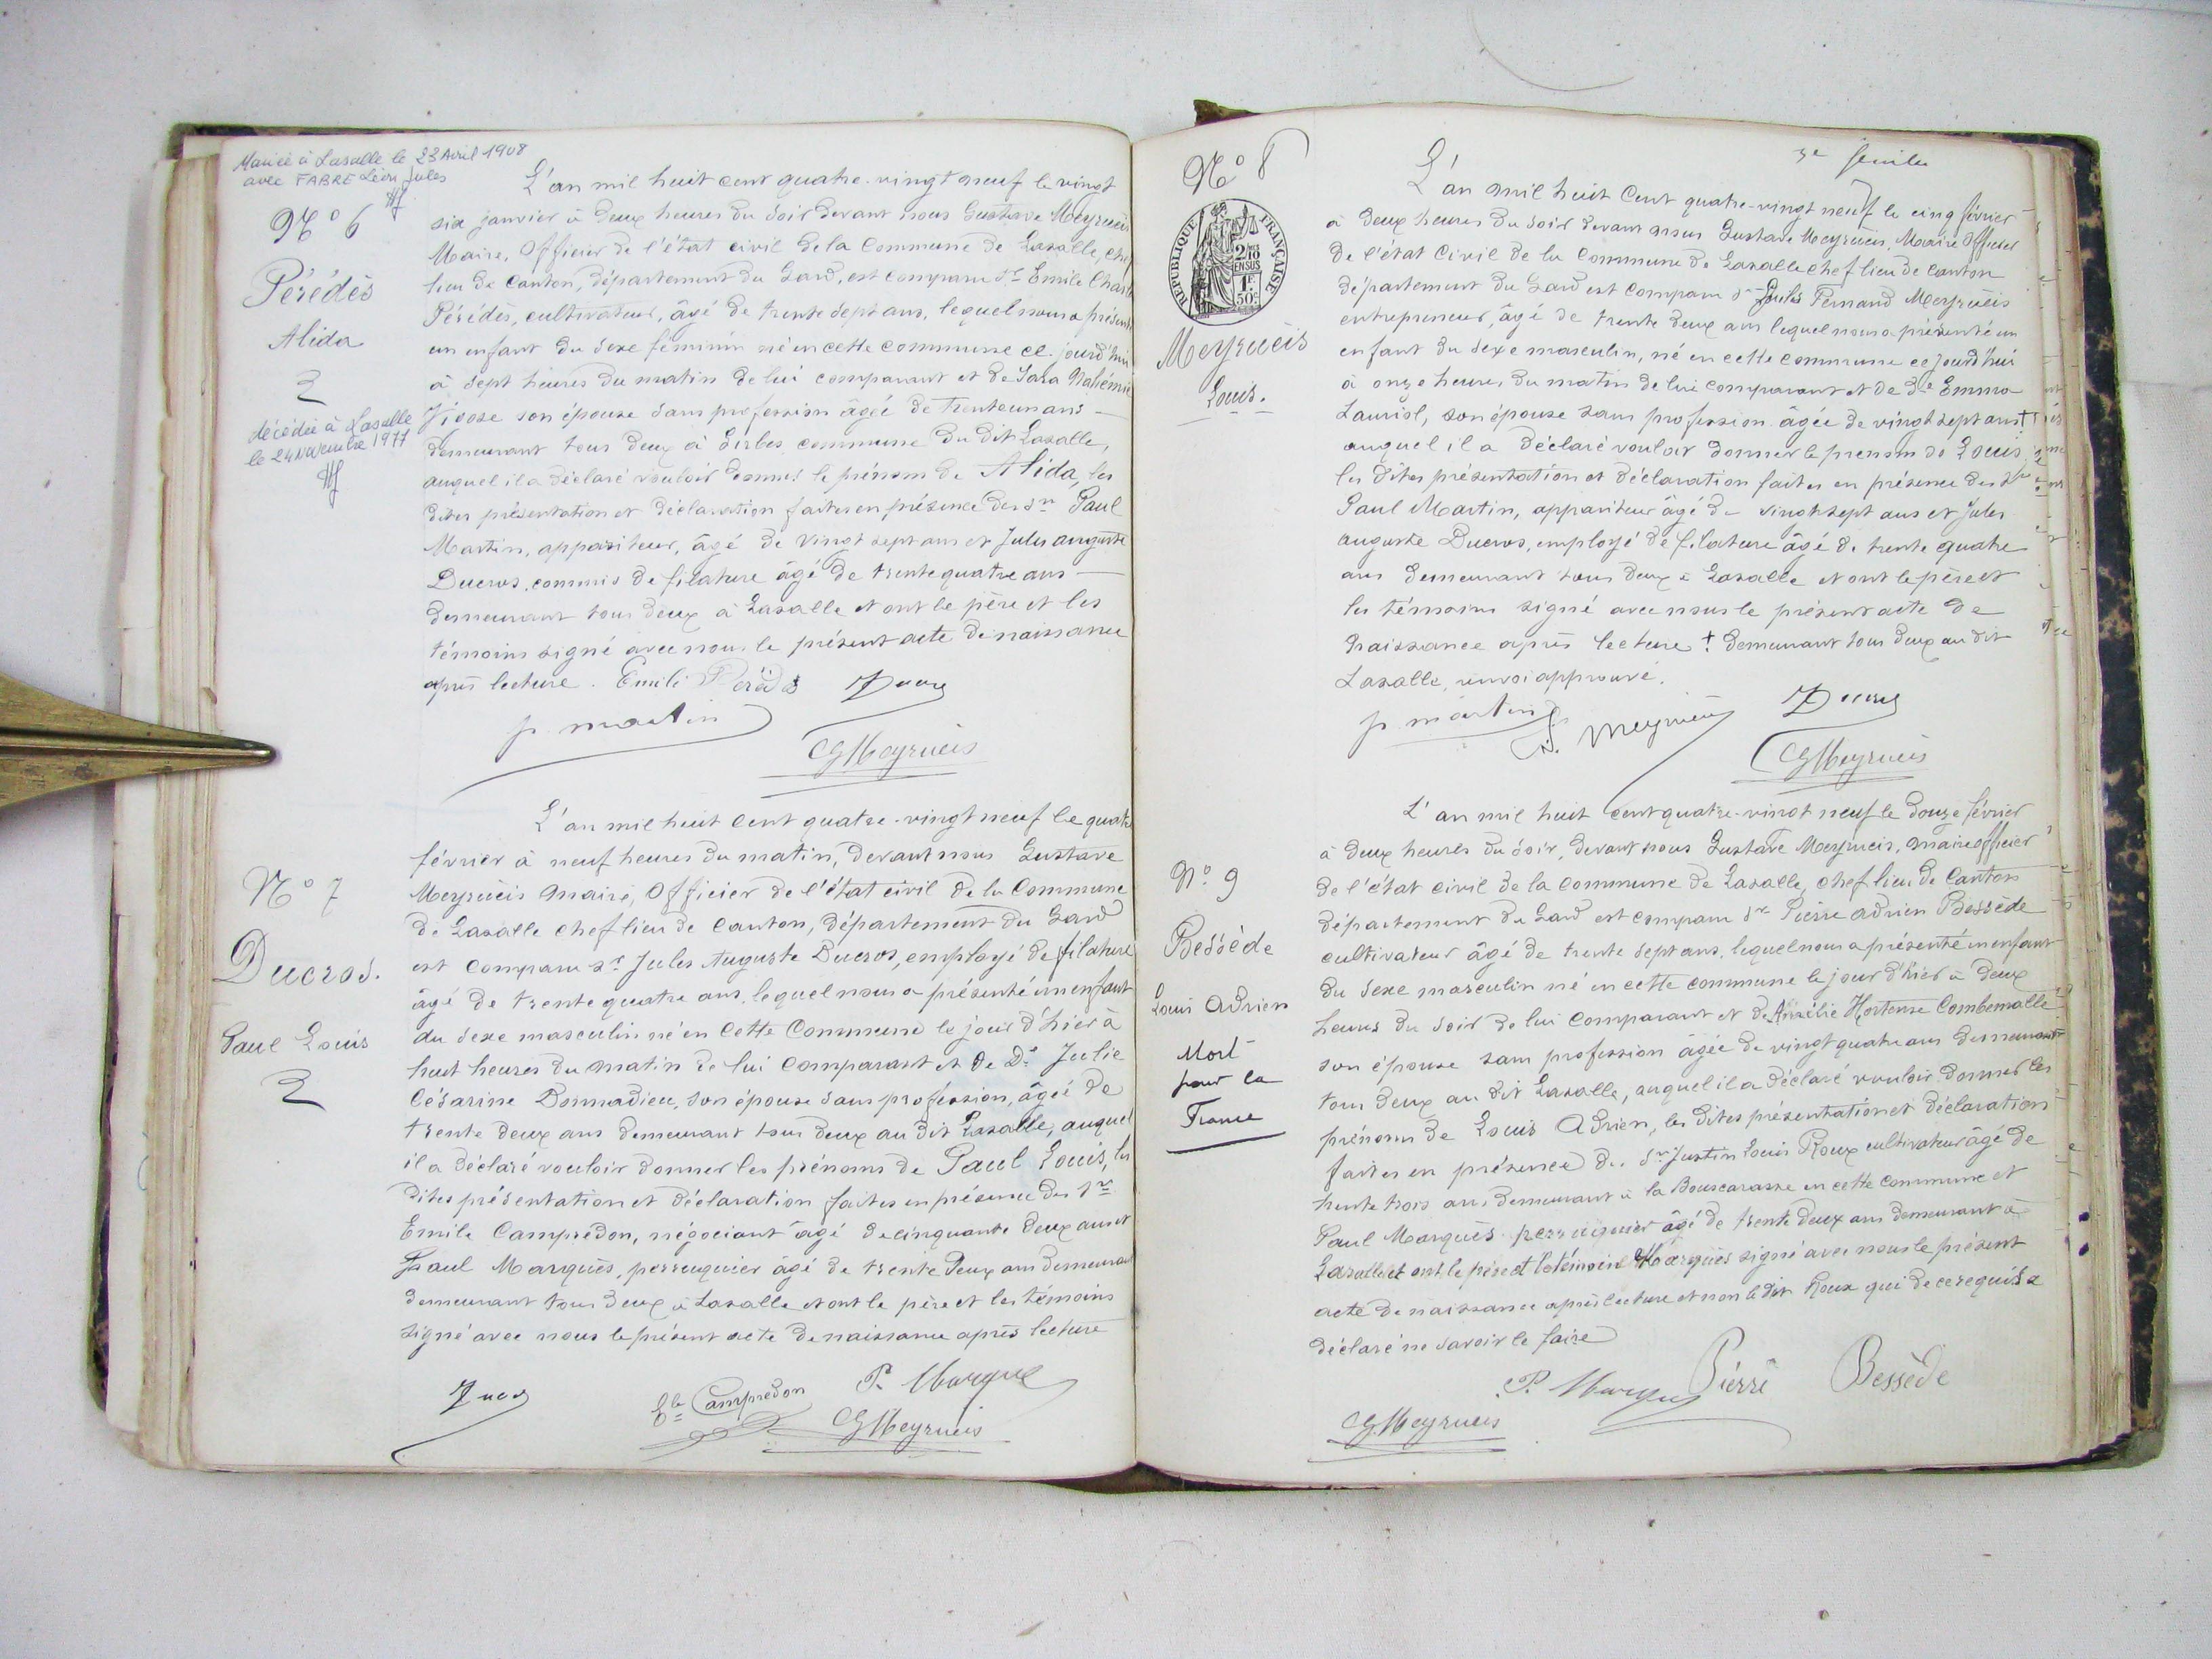 Mariée à Lasalle le 23 Avril 1908
avec FABRE Léon Jules
N° 6
Pérédès
Alida
décédée à Lasalle
le 24 Novembre 1977
L'an mil huit cent quatre-vingt neuf le vingt
six janvier à deux heures du soir devant nous Gustave Meyrueis
Maire, Officier de l'état civil de la Commune de Lasalle, chef
lieu de Canton, département du Gard, est comparu Sr Emile Charles
Pérédès, cultivateur, âgé de trente sept ans, lequel nous a présenté
un enfant du sexe féminin né en cette commune ce jourd'hui
à sept heures du matin de lui comparant et de Sara Nahémie
son épouse sans profession âgée de trente un ans
demeurant tous deux à commune du dit Lasalle,
auquel il a déclaré vouloir donner le prénom de Alida, les
dites présentation et déclaration faites en présence des Srs Paul
Martin, appariteur, âgé de vingt sept ans et Jules auguste
Ducros, commis de filature âgé de trente quatre ans
demeurant tous deux à Lasalle et ont le père et les
témoins signé avec nous le présent acte de naissance
après lecture. Emile Pérédès Ducros
p. martin
G Meyrueis
N° 7
Ducros.
Paul Louis
L'an mil huit cent quatre-vingt neuf le quatre
février à neuf heures du matin, devant nous Gustave
Meyrueis Maire, Officier de l'état civil de la Commune
de Lasalle chef lieu de Canton, département du Gard
est comparu Sr Jules Auguste Ducros, employé de filature
âgé de trente quatre ans, lequel nous a présenté un enfant
du sexe masculin né en cette Commune le jour d'hier à
huit heures du matin de lui comparant et de De Julie
Césarine Donnadieu, son épouse sans profession, âgée de
trente deux ans demeurant tous deux au dit Lasalle, auquel
il a déclaré vouloir donner les prénoms de Paul Louis, les
dites présentation et déclaration faites en présence des Srs
Emile Campredon, négociant âgé de cinquante deux ans et
Paul Marquès, perruquier âgé de trente deux ans demeurant
demeurant tous deux à Lasalle et ont le père et les témoins
signé avec nous le présent acte de naissance après lecture
Ducros
Ele Campredon
P. Marquès
G Meyrueis
3e feuillet
N° 8
RÉPUBLIQUE FRANÇAISE
2/10
EN SUS
1F.
50c
Meyrueis
Louis.
L'an mil huit Cent quatre-vingt neuf le cinq février
à deux heures du soir devant nous Gustave Meyrueis, Maire Officier
de l'état Civil de la Commune de Lasalle chef lieu de Canton
département du Gard est comparu Sr Jules Fernand Meyrueis
entrepreneur, âgé de trente deux ans lequel nous a présenté un
enfant du sexe masculin, né en cette commune ce jourd'hui
à onze heures du matin de lui comparant et de De Emma
Lauriol, son épouse sans profession âgée de vingt sept ans †
auquel il a déclaré vouloir donner le prenom de Louis
les dites présentation et déclaration faites en présence des Srs
Paul Martin, appariteur âgé de vingt sept ans et Jules
auguste Ducros, employé de filature âgé de trente quatre
ans demeurant tous deux à Lasalle et ont le père et
les témoins signé avec nous le présent acte de
naissance après lecture † demeurant tous deux au dit
Lasalle, renvoi approuvé.
p. martin
Meyrueis
Ducros
G Meyrueis
N° 9
Bessède
Louis Adrien
Mort
pour la
France
L'an mil huit cent quatre-vingt neuf le douze février
à deux heures du soir, devant nous Gustave Meyrueis, maire officier
de l'état civil de la commune de Lasalle, chef lieu de Canton
département du Gard est comparu Sr Pierre adrien Bessède
cultivateur âgé de trente sept ans, lequel nous a présenté un enfant
du sexe masculin né en cette commune le jour d'hier à deux
heures du soir de lui comparant et de Amélie Hortense Combemalle
son épouse sans profession âgée de vingt quatre ans demeurant
tous deux au dit Lasalle, auquel il a déclaré vouloir donner les
prénoms de Louis Adrien, les dites présentation et déclaration
faites en présence des Srs Justin Louis Roux cultivateur âgé de
trente trois ans demeurant à la Bouscarasse en cette commune et
Paul Marquès perruquier âgé de trente deux ans demeurant à
Lasalle et ont le père et le témoin Marquès signé avec nous le présent
acte de naissance après lecture et non le dit Roux qui de ce requis a
déclaré ne savoir le faire
P. Marquès
Pierre Bessède
G. Meyrueis